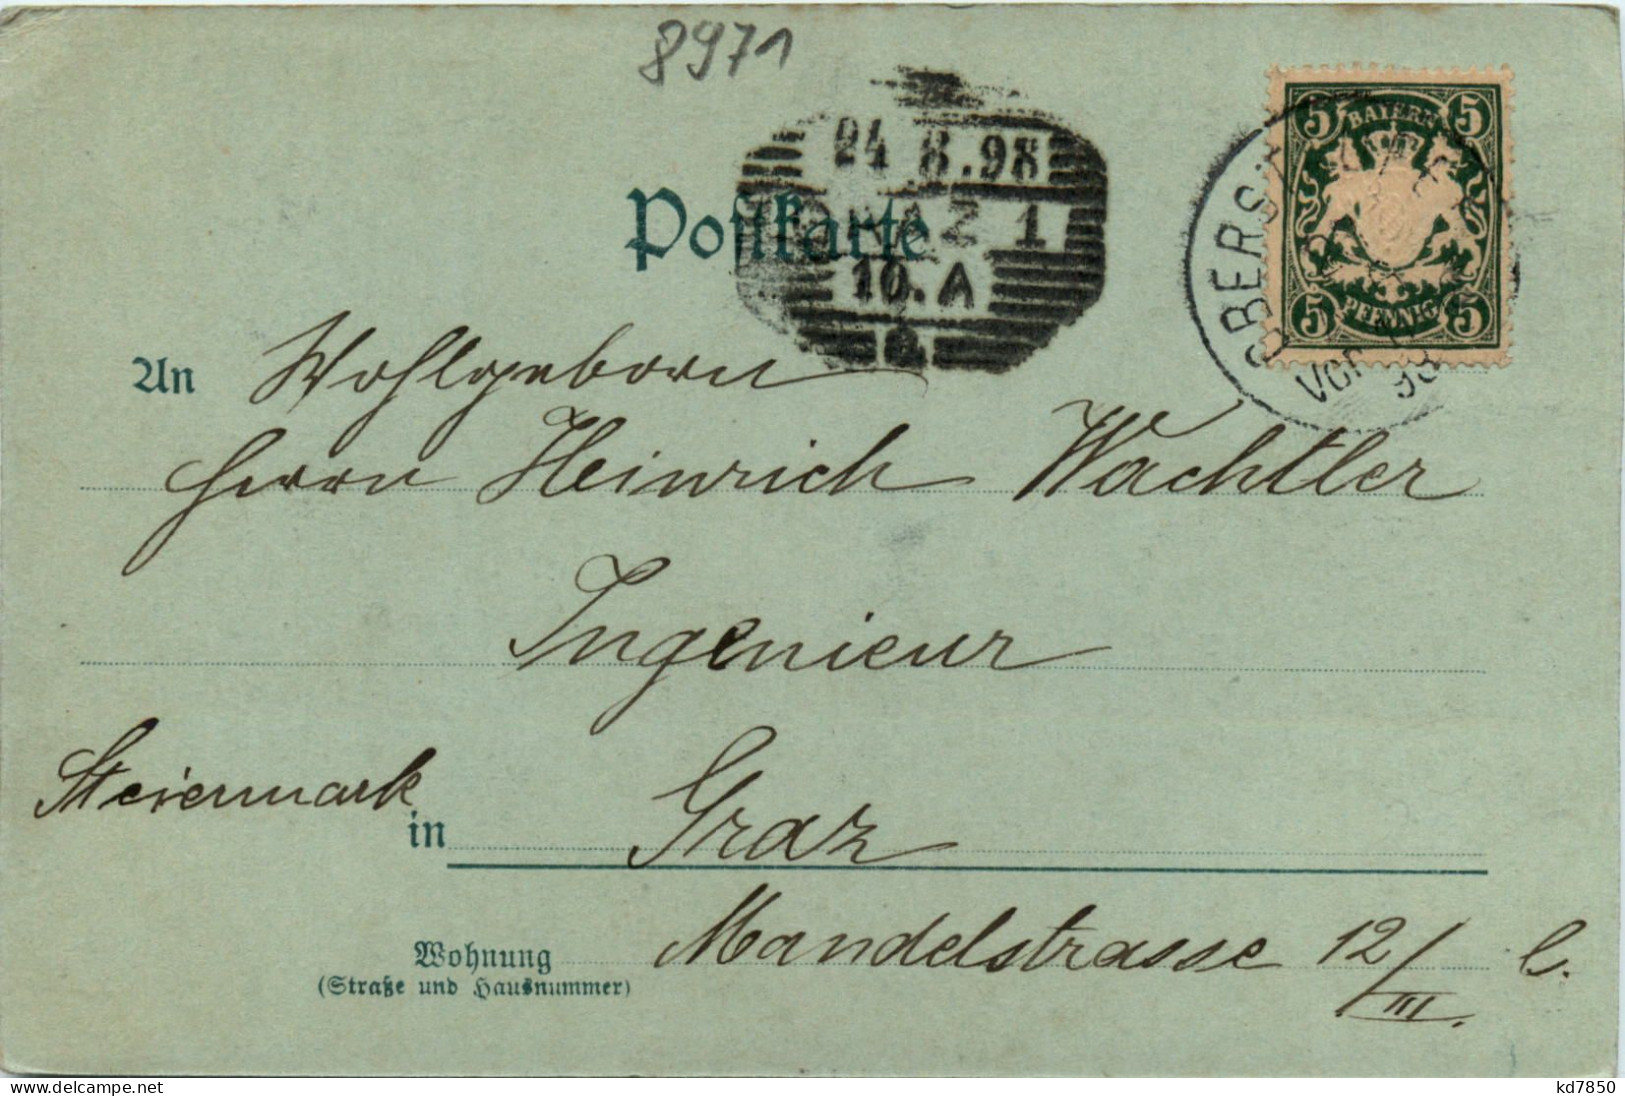 8971
24 8.98
GRAZ 1
10.A
BAYERN
5 5
5 5
PFENNIG
Vor
98
Postkarte
An Wohlgeborn
Herrn Heinrich Wachtler
Ingenieur
Steiermark
in Graz
Wohnung
(Straße und Hausnummer)
Mandelstrasse 12/III.
kd7850